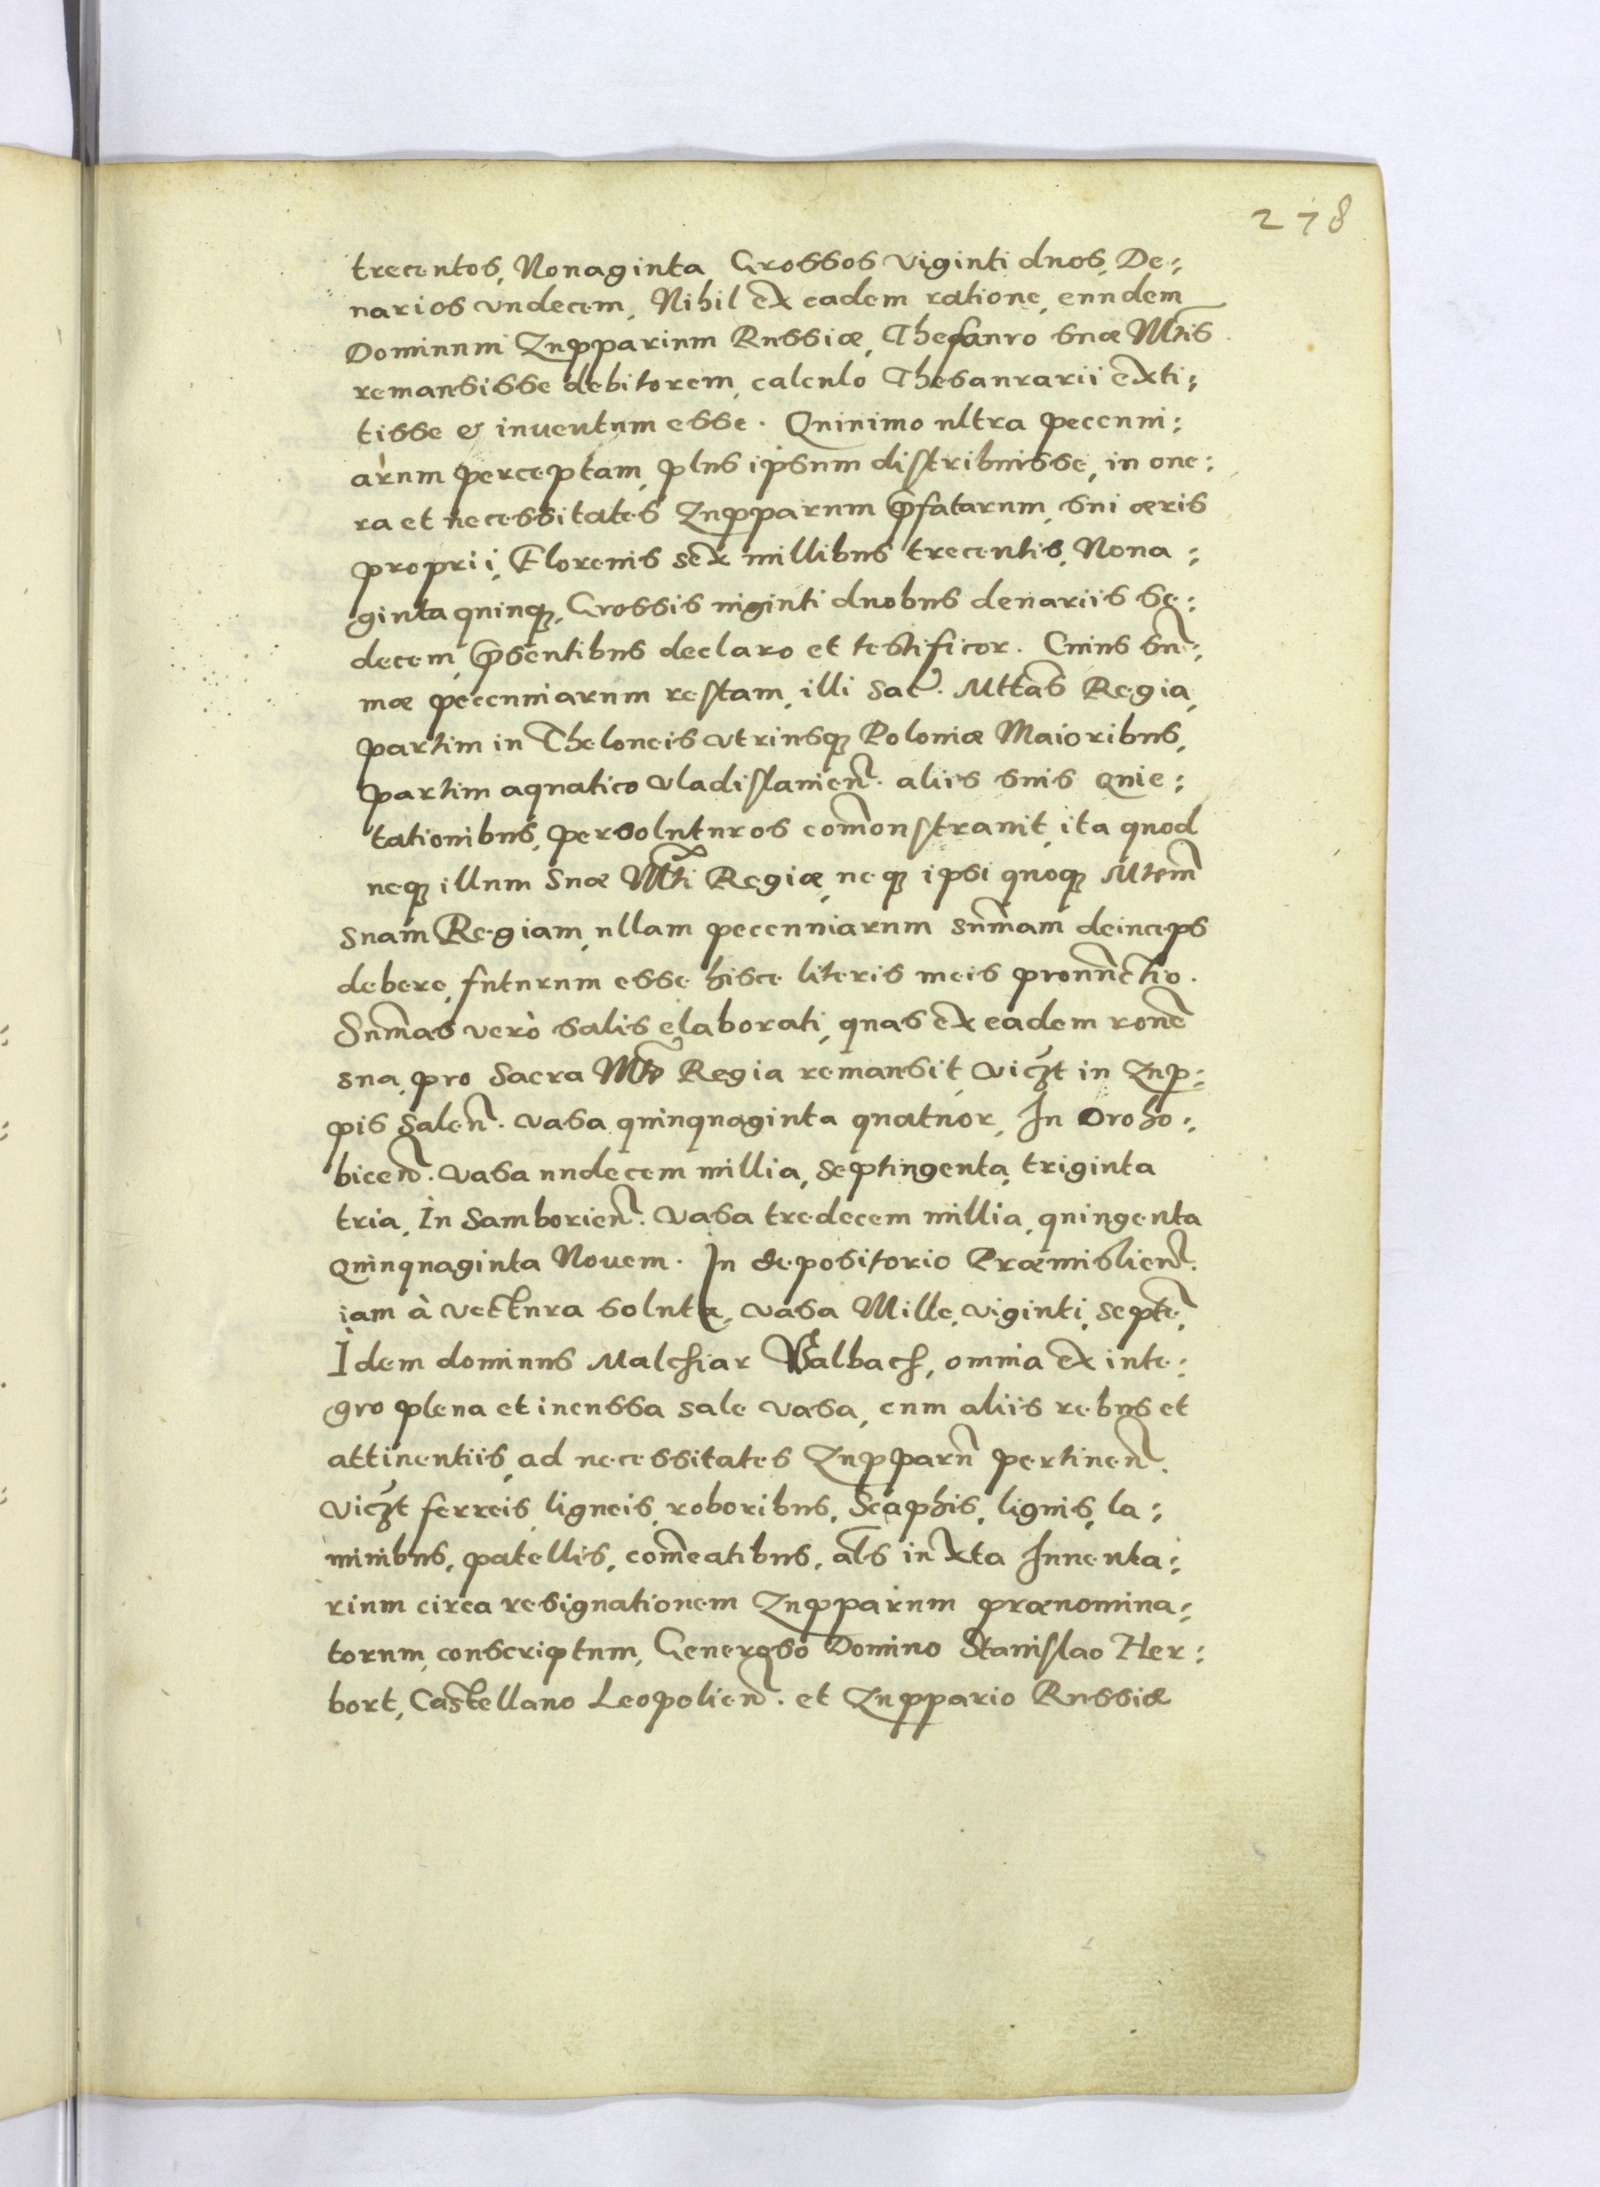 278
trecentos, Nonaginta Grossos viginti duos, De:
narios vndecem, Nihil ex eadem ratione, eundem
Dominum Zupparium Russiæ, Thesauro suæ Mtis
remansisse debitorem, calculo Thesaurarii exti:
tisse & inuentum esse. Quinimo ultra pecenni:
arum perceptam, plus ipsum distribuisse, in one:
ra et necessitates Zupparum p̃fatarum, sui æris
proprii, Florenis sex millibus trecentis, Nona:
ginta quinq, Grossis uiginti duobus denariis se:
decem, p̃sentibus declaro et testificor. Cuius sũ:
mæ pecenniarum restam, illi Sac. Mttas Regia,
partim in Theloneis vtriusq Poloniæ Maioribus,
partim aquatico vladislauieñ. aliis suis quie:
tationibus, persoluturos com̃onstrauit, ita quod
neq illum Suæ Mtti Regiæ, neq ipsi quoq Mtem̃
suam Regiam, ullam pecenniarum sum̃am deinceps
debere, futurum esse hisce literis meis pronũctio.
Sum̃as verò salis elaborati, quas ex eadem ronẽ
sua, pro Sacra Mte Regia remansit, viczt in Zup:
pis Saleñ. vasa quinquaginta quatuor, In Droho:
biceñ. vasa undecem millia, septingenta, triginta
tria, In Samborieñ. vasa tredecem millia, quingenta
quinquaginta Nouem. In depositorio Præmislieñ.
iam à vectura soluta, vasa Mille, viginti, septẽ,
Idem dominus Malchiar Balbach, omnia ex inte:
gro plena et incussa sale vasa, cum aliis rebus et
attinentiis, ad necessitates Zupparũ pertineñ.
viczt ferreis, ligneis, roboribus, Scaphis, lignis, la:
minibus, patellis, com̃eatibus, als iuxta Inuenta:
rium circa resignationem Zupparum prænomina:
torum, conscriptum, Generoso Domino Stanislao Her:
bort, Castellano Leopolieñ. et Zuppario Russiæ